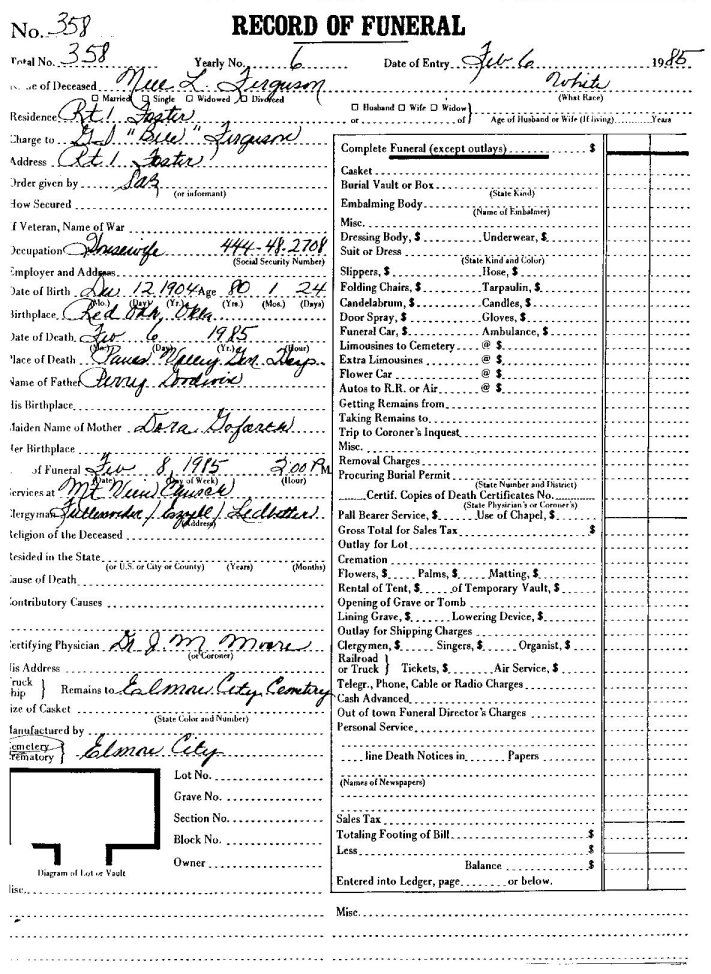 No. 358
RECORD OF FUNERAL
Total No. 358 Yearly No. 6 Date of Entry Feb 6 1985
Name of Deceased L. Ferguson White
☐ Married ☐ Single ☐ Widowed ☐ Divorced (What Race)
Residence Rt. 1 Foster
☐ Husband ☐ Wife ☐ Widow } or of } Age of Husband or Wife (If living) Years
Charge to "Bill" Ferguson
Address Rt. 1 Foster
Order given by
(or informant)
How Secured
If Veteran, Name of War
Occupation Housewife 444-48-2708
(Social Security Number)
Employer and Address
Date of Birth Dec 12 1904 Age 80 1 24
(Mo.) (Day) (Yr.) (Yrs.) (Mos.) (Days)
Birthplace Red Oak, Okla
Date of Death Feb 6 1985
(Mo.) (Day) (Yr.) (Hour)
Place of Death Pauls Valley Gen Hosp
Name of Father Perry
His Birthplace
Maiden Name of Mother Dora Goforth
Her Birthplace
of Funeral Feb 8, 1985 2:00 PM
(Date) (Day of Week) (Hour)
Services at Mt View Church
Clergyman / Ezzell / Ledbetter
(Address)
Religion of the Deceased
Resided in the State
(or U.S. or City or County) (Years) (Months)
Cause of Death
Contributory Causes
Certifying Physician Dr J. M Moore
(or Coroner)
His Address
Truck
Ship } Remains to Elmore City Cemetery
Size of Casket
(State Color and Number)
Manufactured by
Cemetery
Crematory } Elmore City
Lot No.
Grave No.
Section No.
Block No.
Owner
Diagram of Lot or Vault
Misc.
Complete Funeral (except outlays) $
Casket
Burial Vault or Box
(State Kind)
Embalming Body
(Name of Embalmer)
Misc.
Dressing Body, $ Underwear, $
Suit or Dress
(State Kind and Color)
Slippers, $ Hose, $
Folding Chairs, $ Tarpaulin, $
Candelabrum, $ Candles, $
Door Spray, $ Gloves, $
Funeral Car, $ Ambulance, $
Limousines to Cemetery @ $
Extra Limousines @ $
Flower Car @ $
Autos to R.R. or Air @ $
Getting Remains from
Taking Remains to
Trip to Coroner's Inquest
Misc.
Removal Charges
Procuring Burial Permit
(State Number and District)
Certif. Copies of Death Certificates No.
(State Physician's or Coroner's)
Pall Bearer Service, $ Use of Chapel, $
Gross Total for Sales Tax $
Outlay for Lot
Cremation
Flowers, $ Palms, $ Matting, $
Rental of Tent, $ of Temporary Vault, $
Opening of Grave or Tomb
Lining Grave, $ Lowering Device, $
Outlay for Shipping Charges
Clergymen, $ Singers, $ Organist, $
Railroad
or Truck } Tickets, $ Air Service, $
Telegr., Phone, Cable or Radio Charges
Cash Advanced
Out of town Funeral Director's Charges
Personal Service
line Death Notices in Papers
(Names of Newspapers)
Sales Tax
Totaling Footing of Bill $
Less $
Balance $
Entered into Ledger, page or below.
Misc.